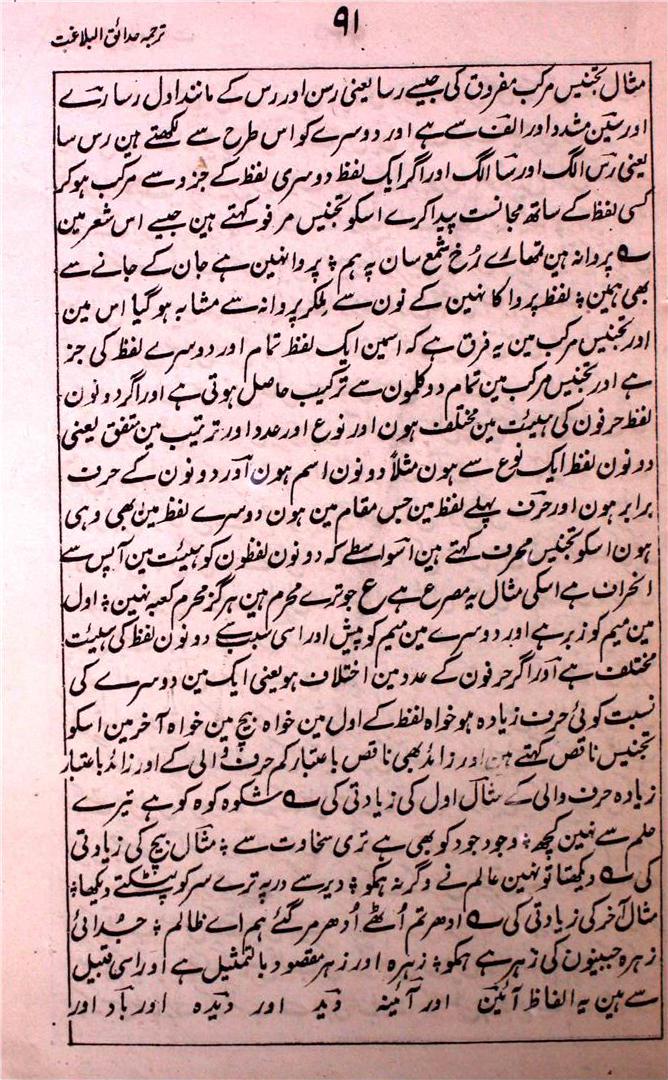 ۹۱
ترجمہ حدائق البلاغت
مثال تجنیس مرکب مفروق کی جیسے رسا یعنی رسن اور رس کے مانند اول رسا رے
اور سین مشدد اور الف سے ہے اور دوسرے کو اس طرح سے لکھتے ہین رس سا
یعنی رس الگ اور سا الگ اور اگر ایک لفظ دوسری لفظ کے جزو سے مرکب ہو کر
کسی لفظ کے ساتھ مجانست پیدا کرے اسکو تجنیس مرفو کہتے ہین جیسے اس شعر مین
ے پروانہ ہین تمھارے رُخ شمع سان پہ ہم ؛ پروا نہین ہے جان کے جانے سے
بھی ہمین ؛ لفظ پروا کا نہین کے نون سے ملکر پروانہ سے مشابہ ہو گیا اس مین
اور تجنیس مرکب مین یہ فرق ہے کہ اسمین ایک لفظ تمام اور دوسرے لفظ کی جز
ہے اور تجنیس مرکب مین تمام دو کلمون سے ترکیب حاصل ہوتی ہے اور اگر دونون
لفظ حرفون کی ہیئت مین مختلف ہون اور نوع اور عدد اور ترتیب مین متفق یعنی
دونون لفظ ایک نوع سے ہون مثلاً دونون اسم ہون اور دونون کے حرف
برابر ہون اور حرف پہلے لفظ مین جس مقام مین ہون دوسرے لفظ مین بھی وہی
ہون اسکو تجنیس محرف کہتے ہین اسواسطے کہ دونون لفظون کو ہیئت مین آپس سے
انحراف ہے اسکی مثال یہ مصرع ہے ع جو ترے محرم ہین ہرگز محرم کعبہ نہین ؛ اول
مین میم کو زبر ہے اور دوسرے مین میم کو پیش اور اسی سبب سے دونون لفظ کی ہیئت
مختلف ہے اور اگر حرفون کے عدد مین اختلاف ہو یعنی ایک مین دوسرے کی
نسبت کوئی حرف زیادہ ہو خواہ لفظ کے اول مین خواہ بیچ مین خواہ آخر مین اسکو
تجنیس ناقص کہتے ہین اور زائد بھی ناقص باعتبار کم حرف والی کے اور زائد باعتبار
زیادہ حرف والی کے مثال اول کی زیادتی کی ے شکوہ کوہ کو ہے تیرے
حلم سے نہین کچھ ؛ وجود جود کو بھی ہے تری سخاوت سے ؛ مثال بیچ کی زیادتی
کی ے دیکھتا تو نہین عالم نے وگرنہ ہمکو ؛ دیر سے در پہ ترے سر کو پٹکتے دیکھا ؛
مثال آخر کی زیادتی کی ے ادھر تم اُٹھے اُدھر مر گئے ہم اے ظالم ؛ جدائی
زہرہ جبینون کی زہر ہے ہمکو ؛ زہرہ اور زہر مقصود بالتمثیل ہے اور اسی قبیل
سے ہین یہ الفاظ آئین اور آئینہ دید اور دیدہ اور باد اور